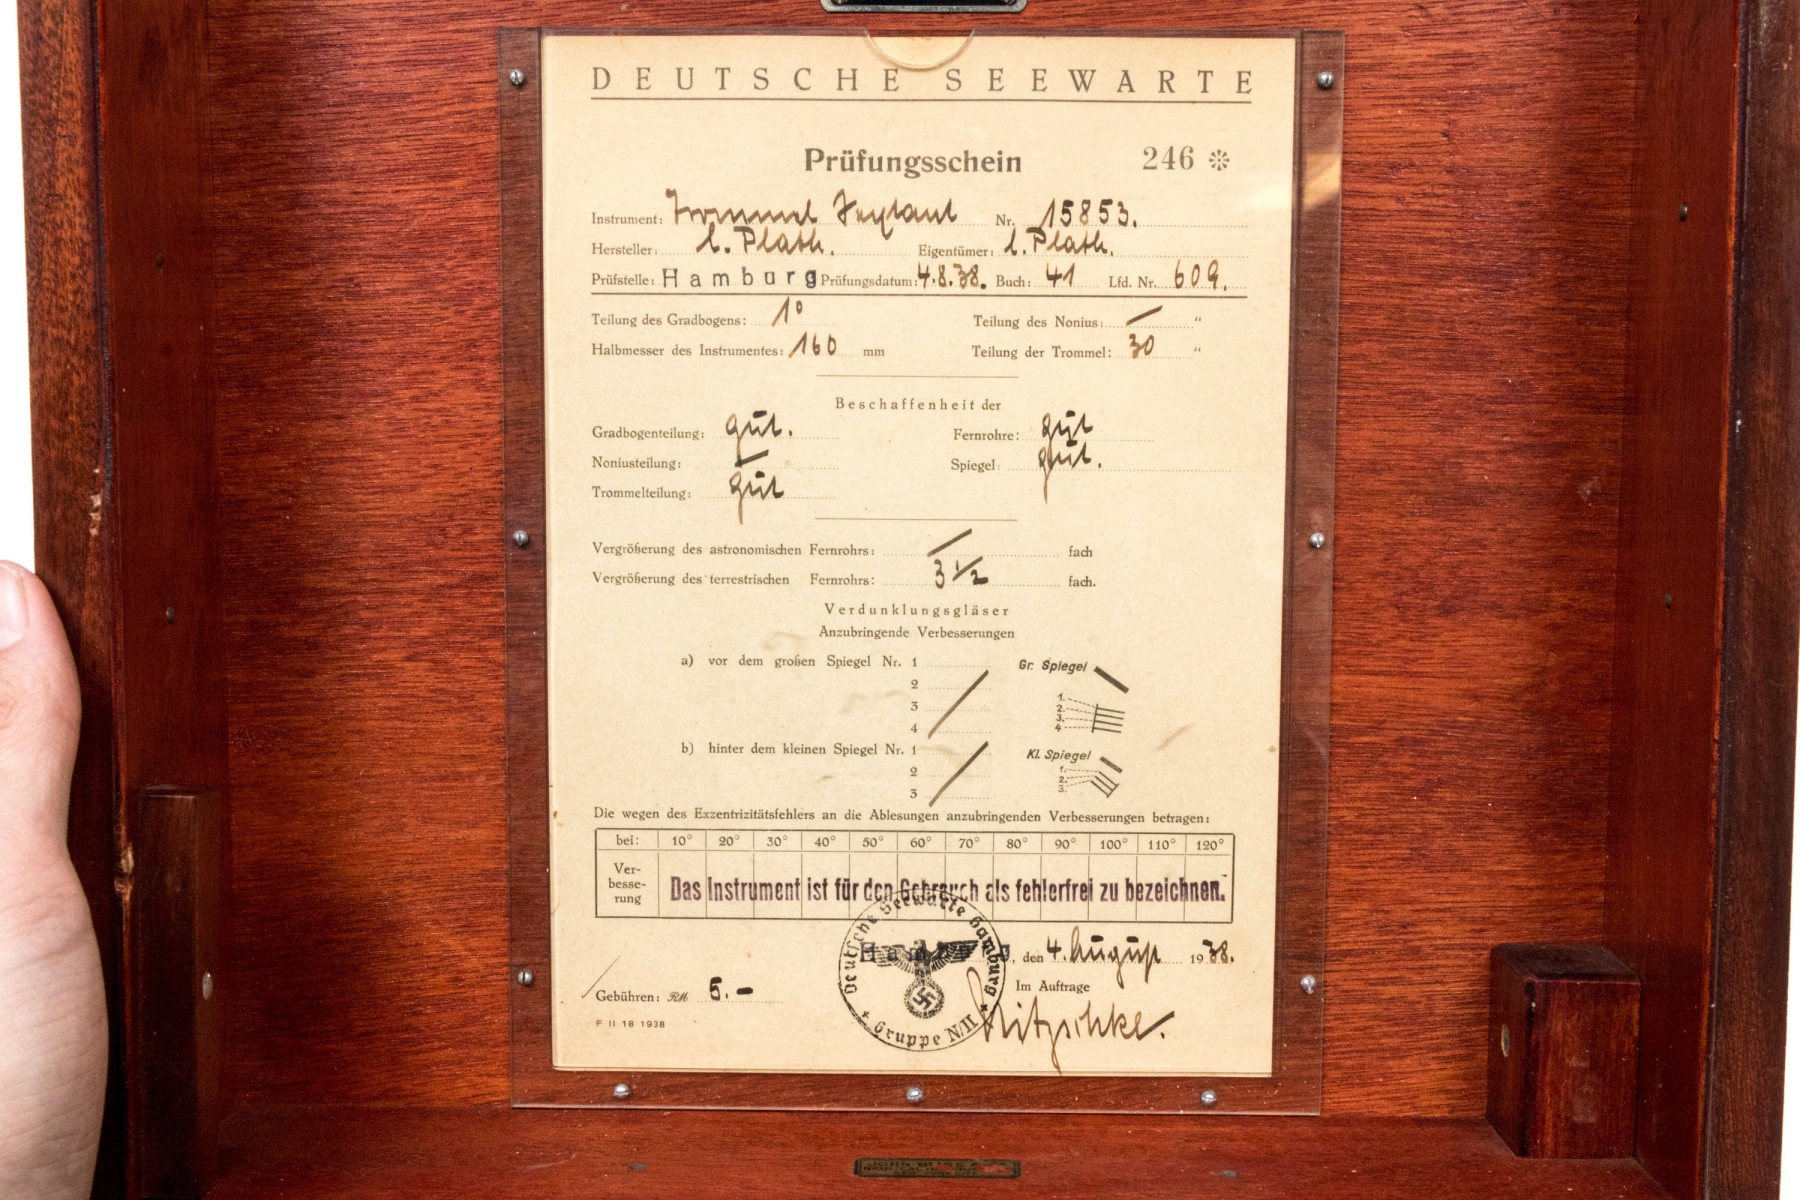 DEUTSCHE SEEWARTE
Prüfungsschein 246 ※
Instrument: Trommel Sextant Nr. 15853.
Hersteller: C. Plath. Eigentümer: C. Plath.
Prüfstelle: Hamburg Prüfungsdatum: 4.8.38. Buch: 41 Lfd. Nr. 609.
Teilung des Gradbogens: 1° Teilung des Nonius: / "
Halbmesser des Instrumentes: 160 mm Teilung der Trommel: 30 "
Beschaffenheit der
Gradbogenteilung: gut. Fernrohre: gut
Noniusteilung: / Spiegel: gut.
Trommelteilung: gut
Vergrößerung des astronomischen Fernrohrs: / fach
Vergrößerung des terrestrischen Fernrohrs: 3 1/2 fach.
Verdunklungsgläser
Anzubringende Verbesserungen
a) vor dem großen Spiegel Nr. 1 Gr. Spiegel
2
3
4
1.
2.
3.
4.
b) hinter dem kleinen Spiegel Nr. 1 Kl. Spiegel
2
3
1.
2.
3.
Die wegen des Exzentrizitätsfehlers an die Ablesungen anzubringenden Verbesserungen betragen:
bei: 10° 20° 30° 40° 50° 60° 70° 80° 90° 100° 110° 120°
Ver-
besse-
rung
Das Instrument ist für den Gebrauch als fehlerfrei zu bezeichnen.
Deutsche Seewarte Hamburg
Gruppe N/II
Hamburg, den 4. August 1938.
Im Auftrage
Gebühren: RM 5.-
F II 18 1938